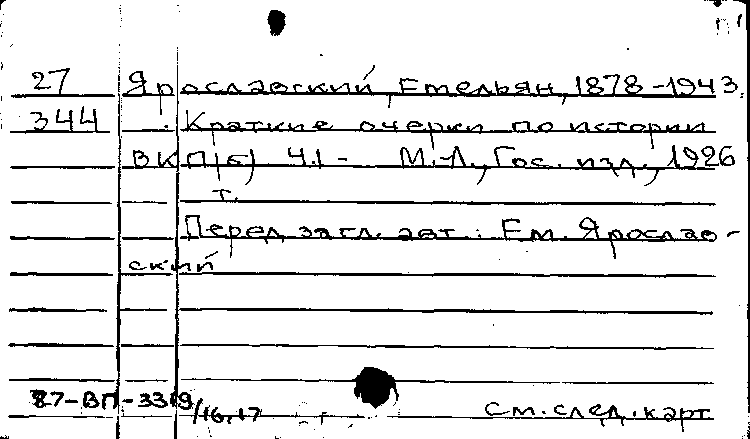 27 Ярославский, Емельян, 1878-1943.
344 Краткие очерки по истории
ВКП(б) Ч.1 - М.-Л., Гос. изд., 1926
т.
Перед загл. авт.: Ем. Ярослав-
ский
27-ВП-3319/16,17 См. след. карт